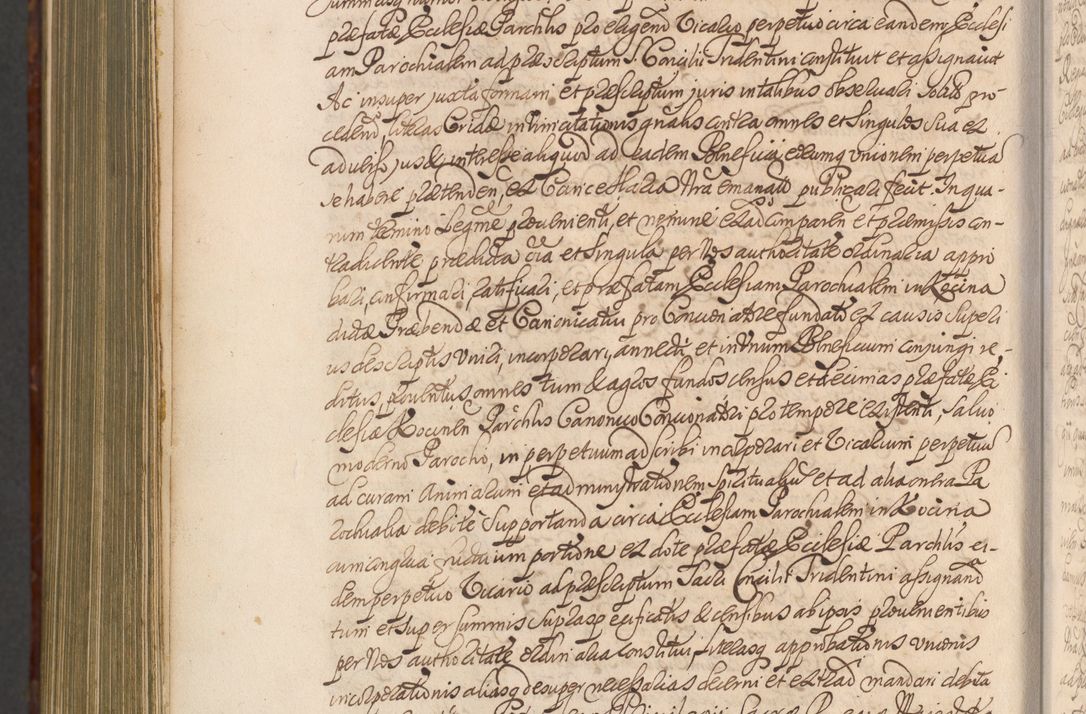 præfatæ Ecclesiæ Parchlis pro eligend Vicario perpetuo circa eandem Ecclesi
am Parochialem ad præscriptum S. Concilii Tridentini constituit et assignavit
Ac insuper juxta formam et præscriptum juris in talibus observari solito pro
cedend, literas Cridæ in vim citationis gnalis contra omnes et singulos sua et
adverso jus et interesse aliquod ad eadem Beneficii eorumq unionem perpetua
se habere prætenden, ex Cancellaria Nra emanato publicari fecit. In qua
rum termino Legme provenienti, et nemine ex ad comparen et præmissis con
tradicente prædicta oia et singula per Nos authoritate ordinaria appro
bari, confirmari, ratificari, et præfatam Ecclesiam Parochialem in Kocina
dictæ Præbendæ et Canonicatui pro Concionatore fundato ex causis superi
us descriptis uniri, incorporari, annecti, et in unum Beneficium conjungi re,
ditus, proventusq omnes tum et agros fundos census et decimas præfatæ Ec
clesiæ Kocinen Parchlis Canonico Concionatori pro tempore existenti, salvo
moderno Parocho, in perpetuum adscribi incorporari et Vicarium perpetuu
ad curam Animarum et administrationem Spiritualiu et ad alia onera Pa
rochialia debite supportanda circa Ecclesiam Parochialem in Kocina
cum congrua fructuum portione ex dote præfatæ Ecclesiæ Parchlis ei-
dem perpetuo Vicario ad præscriptum Sacri Concilii Tridentini assignand
tum et super summis supra specificatis et censibus ab ipsis provenientibus
per Nos authoritate ordinaria constitui, literasq approbationis unionis
incorporationis aliasq desuper necessarias decerni et extrad mandari debita